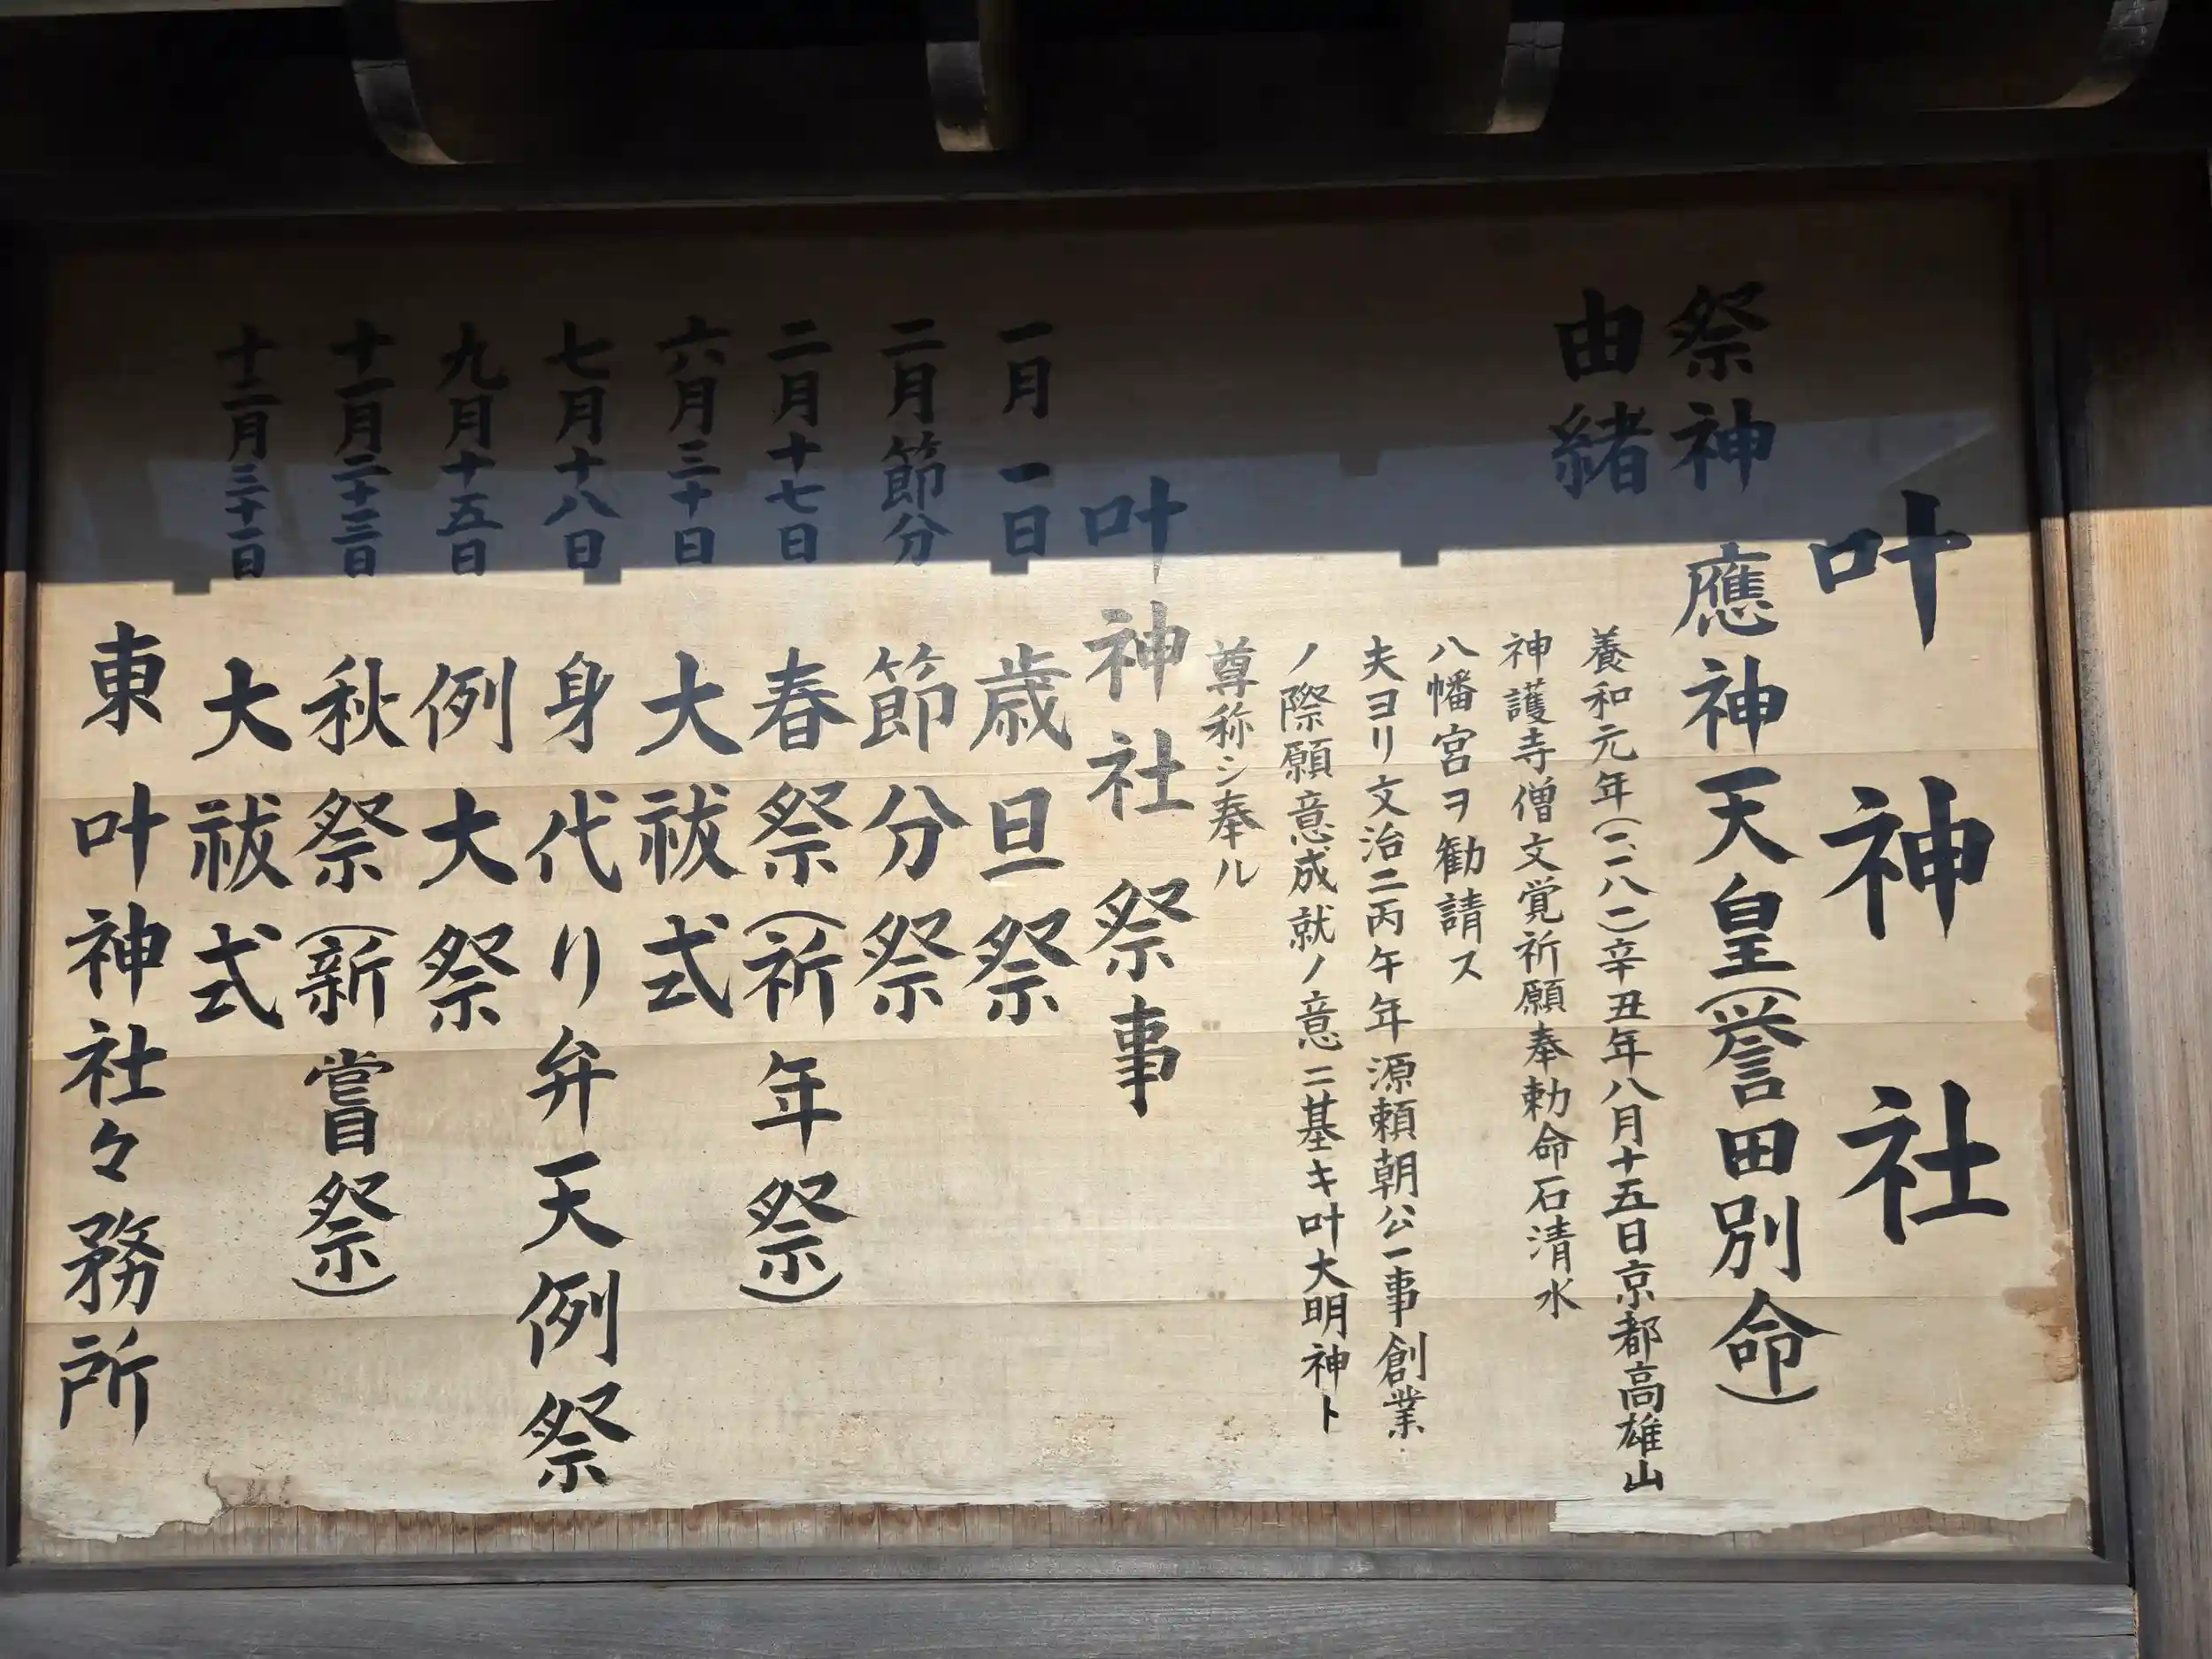 叶神社
祭神 應神天皇(誉田別命)
由緒 養和元年(一一八一)辛丑年八月十五日京都高雄山
神護寺僧文覚祈願奉勅命石清水
八幡宮ヲ勧請ス
夫ヨリ文治二丙午年源頼朝公一事創業
ノ際願意成就ノ意ニ基キ叶大明神ト
尊称シ奉ル
叶神社祭事
一月一日 歳旦祭
二月節分 節分祭
二月十七日 春祭(祈年祭)
六月三十日 大祓式
七月十八日 身代り弁天例祭
九月十五日 例大祭
十一月二十三日 秋祭(新嘗祭)
十二月三十一日 大祓式
東叶神社々務所